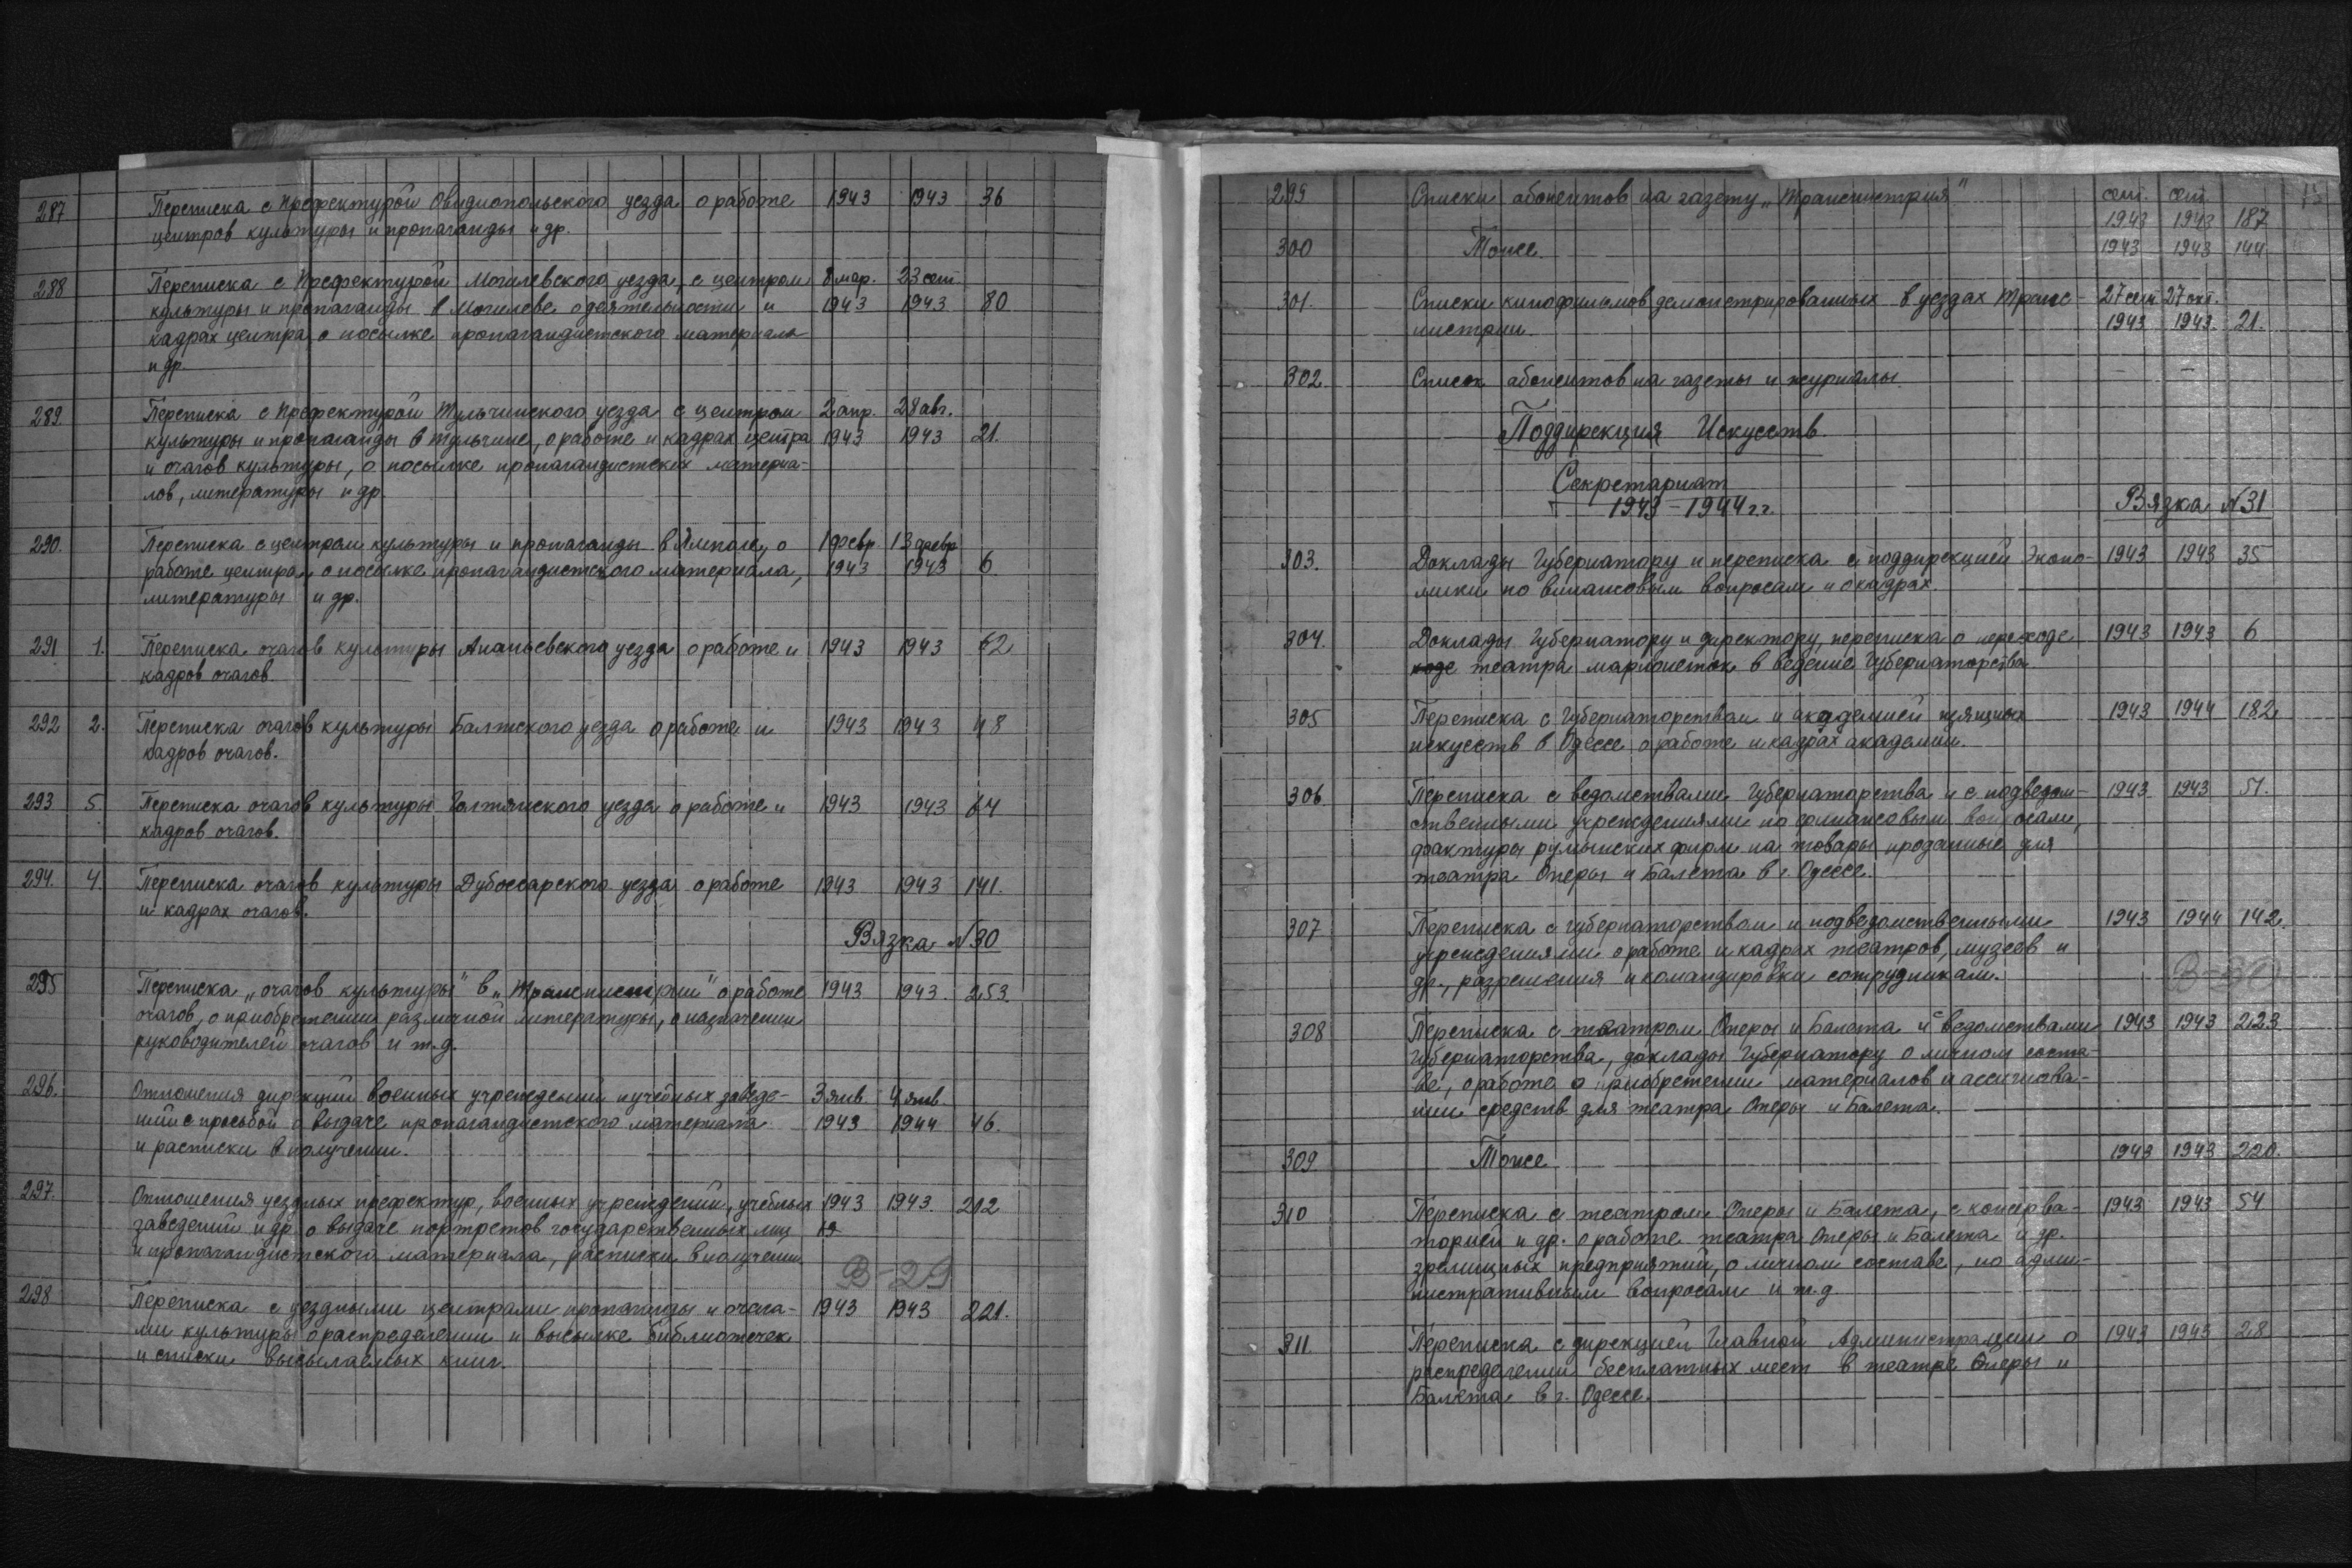 287 Переписка с Префектурой Овидиопольского уезда о работе 1943 1943 36
центров культуры и пропаганды и др.
288 Переписка с Префектурой Могилевского уезда, с центром 8 мар. 23 сент.
культуры и пропаганды в Могилеве о деятельности и 1943 1943 80
кадрах центра, о посылке пропагандистского материала
и др.
289 Переписка с Префектурой Тульчинского уезда с центром 2 апр. 28 авг.
культуры и пропаганды в Тульчине, о работе и кадрах центра 1943 1943 21.
и очагов культуры, о посылке пропагандистских материа-
лов, литературы и др.
290. Переписка с центром культуры и пропаганды в Ямполе, о 1 февр. 13 февр
работе центра, о посылке пропагандистского материала, 1943 1943 6
литературы и др.
291 1. Переписка очагов культуры Ананьевского уезда о работе и 1943 1943 62
кадров очагов.
292 2. Переписка очагов культуры Балтского уезда о работе и 1943 1943 48
кадров очагов.
293 5. Переписка очагов культуры Голтянского уезда о работе и 1943 1943 64
кадров очагов.
294. 4. Переписка очагов культуры Дубоссарского уезда о работе 1943 1943 141.
и кадрах очагов.
Вязка № 30
295 Переписка „очагов культуры" в „Транснистрии" о работе 1943 1943. 253.
очагов, о приобретении различной литературы, о назначении
руководителей очагов и т.д.
296. Отношения дирекций военных учреждений и учебных заведе- 3 янв. 4 янв.
ний с просьбой о выдаче пропагандистского материала 1943 1944 46.
и расписки в получении.
297. Отношения уездных префектур, военных учреждений, учебных 1943 1943. 212
заведений и др. о выдаче портретов государственных лиц 19
и пропагандистского материала, расписки в получении.
В-29
298 Переписка с уездными центрами пропаганды и очага- 1943 1943 221.
ми культуры о распределении и высылке библиотечек
и списки высылаемых книг.
299 Списки абонентов на газету „Транснистрия" сент. сент.
1943 1943 187
300 Тоже. 1943 1943 144
301. Списки кинофильмов демонстрированных в уездах Транс- 27 сент 27 окт.
нистрии. 1943 1943. 21.
302. Список абонентов на газеты и журналы. — —
Поддирекция Искусств.
Секретариат
1943 - 1944 г.г.
Вязка № 31
303. Доклады Губернатору и переписка с поддирекцией Эконо- 1943 1943 35
мики по финансовым вопросам и о кадрах.
304. Доклады Губернатору и директору, переписка о переходе 1943 1943 6
ходе театра марионеток в ведение Губернаторства.
305 Переписка с Губернаторством и академией изящных 1943 1944 182
искусств в Одессе о работе и кадрах академии.
306 Переписка с ведомствами Губернаторства и с подведом- 1943 1943 51.
ственными учреждениями по финансовым вопросам,
фактуры румынских фирм на товары проданные для
театра Оперы и Балета в г. Одессе.
307 Переписка с губернаторством и подведомственными 1943 1944 142.
учреждениями о работе и кадрах театров, музеев и
др., разрешения и командировки сотрудникам.
В-30
308 Переписка с театром Оперы и Балета и с ведомствами 1943 1943 223
Губернаторства, доклады Губернатору о личном соста-
ве, о работе о приобретении материалов и ассигнова-
нии средств для театра Оперы и Балета.
309 Тоже 1943 1943 220.
310 Переписка с театром Оперы и Балета, с консерва- 1943 1943 54
торией и др. о работе театра Оперы и Балета и др.
зрелищных предприятий, о личном составе, по адми-
нистративным вопросам и т.д.
311 Переписка с дирекцией Главной Администрации о 1943 1943 28
распределении бесплатных мест в театре Оперы и
Балета в г. Одессе.